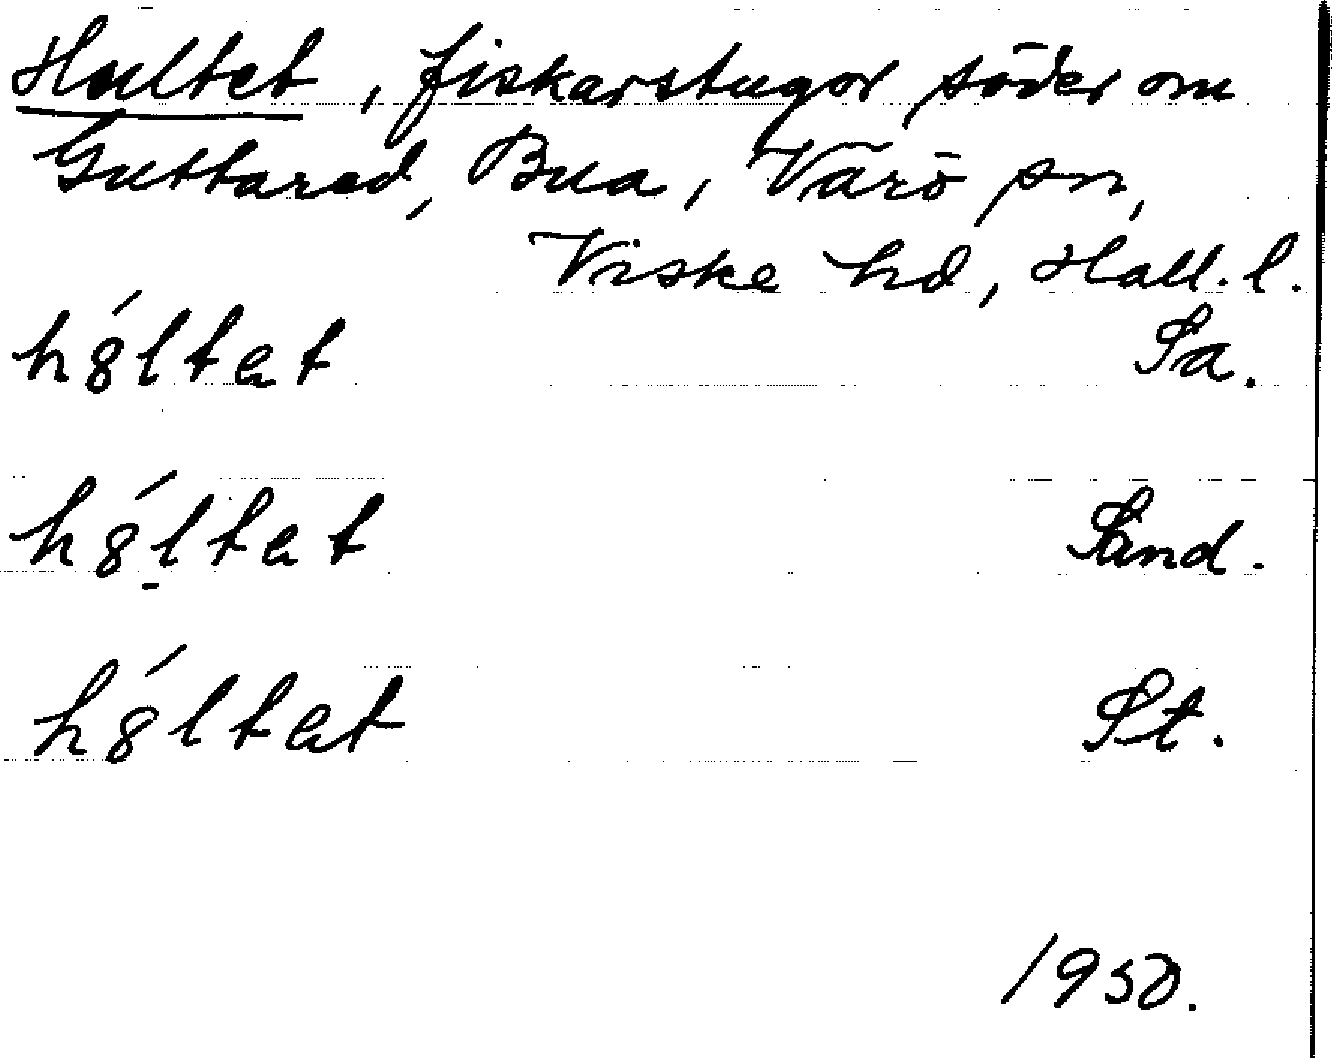 Hultet, fiskarstugor söder om
Guttared, Bua, Värö sn,
Viske hd, Hall. l.
hó̤ltat Sa.
hȣ́ltat Sand.
hȣ́ltat St.
1950.